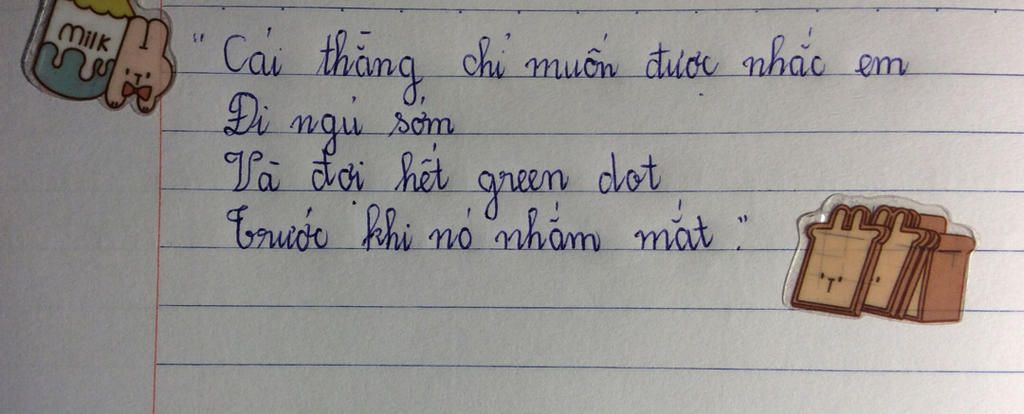 milk
"Cái thằng chỉ muốn được nhắc em
Đi ngủ sớm
Và đợi hết green dot
Trước khi nó nhắm mắt."